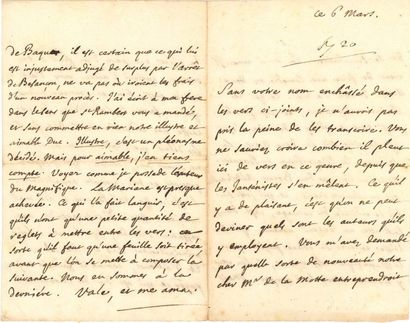 de Baquet, il est certain que ce qui lui
est injustement adjugé de surplus par l'arrêt
de Besançon, ne va pas où iroient les frais
d'un nouveau procès. J'ai écrit à mon frere
dans le sens que St Rambert vous a mandés,
et sans commettre en rien notre illustre et
aimable Duc. Illustre, c'est un pleonasme
décidé. Mais pour aimable, j'en tiens
compte. Voyez comme je possede l'auteur
du Magnifique. La Mariane est presque
achevée. Ce qui la fait languir, c'est
qu'ils n'ont qu'une petite quantité de
reglets à mettre entre les vers: en
sorte qu'il faut qu'une feuille soit tirée
avant que l'on se mette à composer la
suivante. Nous en sommes à la
derniére. Vale, et me ama.
ce 6 Mars.
20
Sans votre nom enchâssé dans
les vers ci-joints, je n'aurois pas
pris la peine de les transcrire. Vous
ne sauriez croire combien il pleut
ici de vers en ce genre, depuis que
les Jansenistes s'en mêlent. Ce qu'il
y a de plaisant, c'est qu'on ne peut
deviner quels sont les auteurs qu'ils
y employent. Vous m'avez demandé
par quelle sorte de nouveauté notre
cher Mr de la Motte entreprendroit